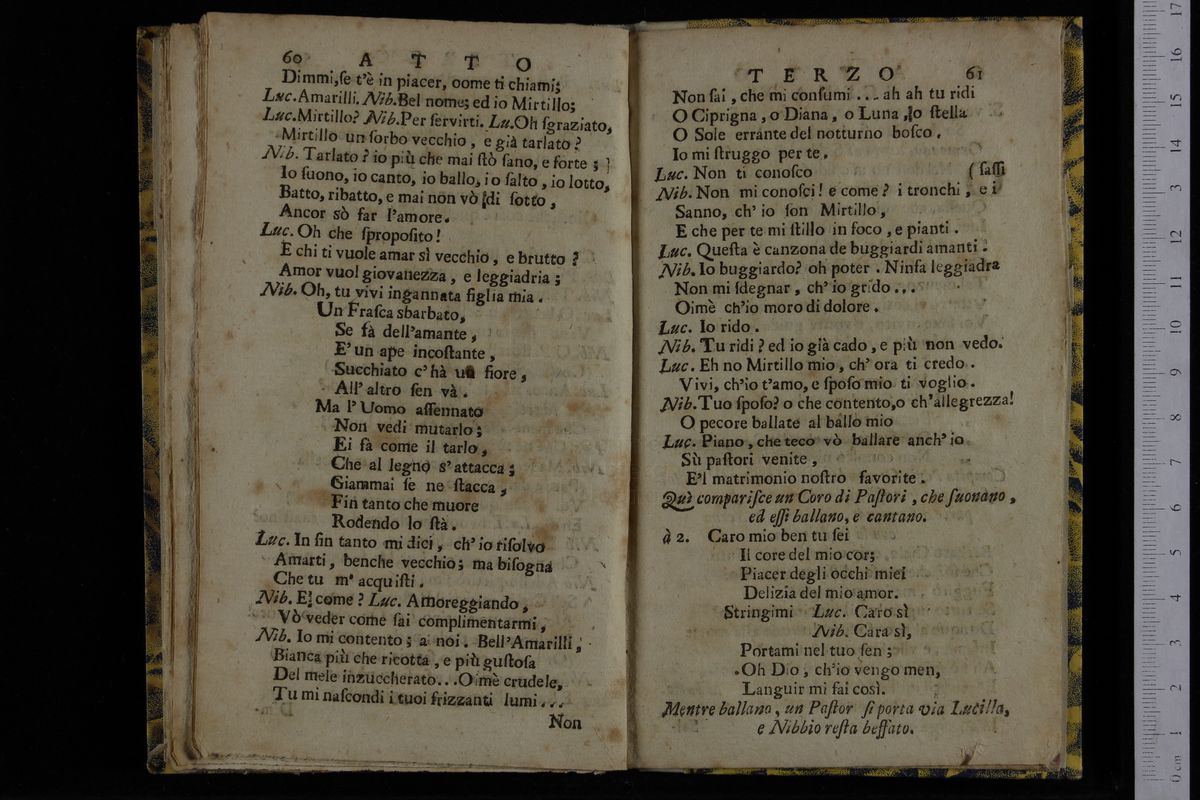 60 ATTO
Dimmi,ſe t'è in piacer, oome ti chiami;
Luc.Amarilli. Nib.Bel nome; ed io Mirtillo;
Luc.Mirtillo? Nib.Per ſervirti. Lu.Oh ſgraziato,
Mirtillo un ſorbo vecchio, e già tarlato?
Nib. Tarlato? io più che mai ſtò ſano, e forte;
Io ſuono, io canto, io ballo, io ſalto, io lotto,
Batto, ribatto, e mai non vò di ſotto,
Ancor sò far l'amore.
Luc. Oh che ſpropoſito!
E chi ti vuole amar sì vecchio, e brutto?
Amor vuol giovanezza, e leggiadria;
Nib. Oh, tu vivi ingannata figlia mia.
Un Fraſca sbarbato,
Se fà dell'amante,
E' un ape incoſtante,
Succhiato c'hà un fiore,
All' altro ſen và.
Ma l' Uomo aſſennato
Non vedi mutarlo;
Ei fà come il tarlo,
Che al legno s'attacca;
Giammai ſe ne ſtacca,
Fin tanto che muore
Rodendo lo ſtà.
Luc. In fin tanto mi dici, ch' io riſolvo
Amarti, benche vecchio; ma biſogna
Che tu m' acquiſti.
Nib. E come? Luc. Amoreggiando,
Vò veder come ſai complimentarmi,
Nib. Io mi contento; a noi. Bell'Amarilli,
Bianca più che ricotta, e più guſtoſa
Del mele inzuccherato...Oimè crudele,
Tu mi naſcondi i tuoi frizzanti lumi...
Non
TERZO 61
Non ſai, che mi conſumi... ah ah tu ridi
O Ciprigna, o Diana, o Luna, o ſtella
O Sole errante del notturno boſco.
Io mi ſtruggo per te.
Luc. Non ti conoſco (ſaſſi
Nib. Non mi conoſci! e come? i tronchi, e i
Sanno, ch' io ſon Mirtillo,
E che per te mi ſtillo in foco, e pianti.
Luc. Queſta è canzona de buggiardi amanti.
Nib. Io buggiardo? oh poter. Ninfa leggiadra
Non mi ſdegnar, ch' io grido...
Oimè ch'io moro di dolore.
Luc. Io rido.
Nib. Tu ridi? ed io già cado, e più non vedo.
Luc. Eh no Mirtillo mio, ch' ora ti credo.
Vivi, ch'io t'amo, e ſpoſo mio ti voglio.
Nib.Tuo ſpoſo? o che contento,o ch'allegrezza!
O pecore ballate al ballo mio
Luc. Piano, che teco vò ballare anch' io
Sù paſtori venite,
E'l matrimonio noſtro favorite.
Quì compariſce un Coro di Paſtori, che ſuonano,
ed eſſi ballano, e cantano.
à 2. Caro mio ben tu ſei
Il core del mio cor;
Piacer degli occhi miei
Delizia del mio amor.
Stringimi Luc. Caro sì
Nib. Cara sì,
Portami nel tuo ſen;
Oh Dio, ch'io vengo men,
Languir mi fai così.
Mentre ballano, un Paſtor ſi porta via Lucilla,
e Nibbio reſta beffato.